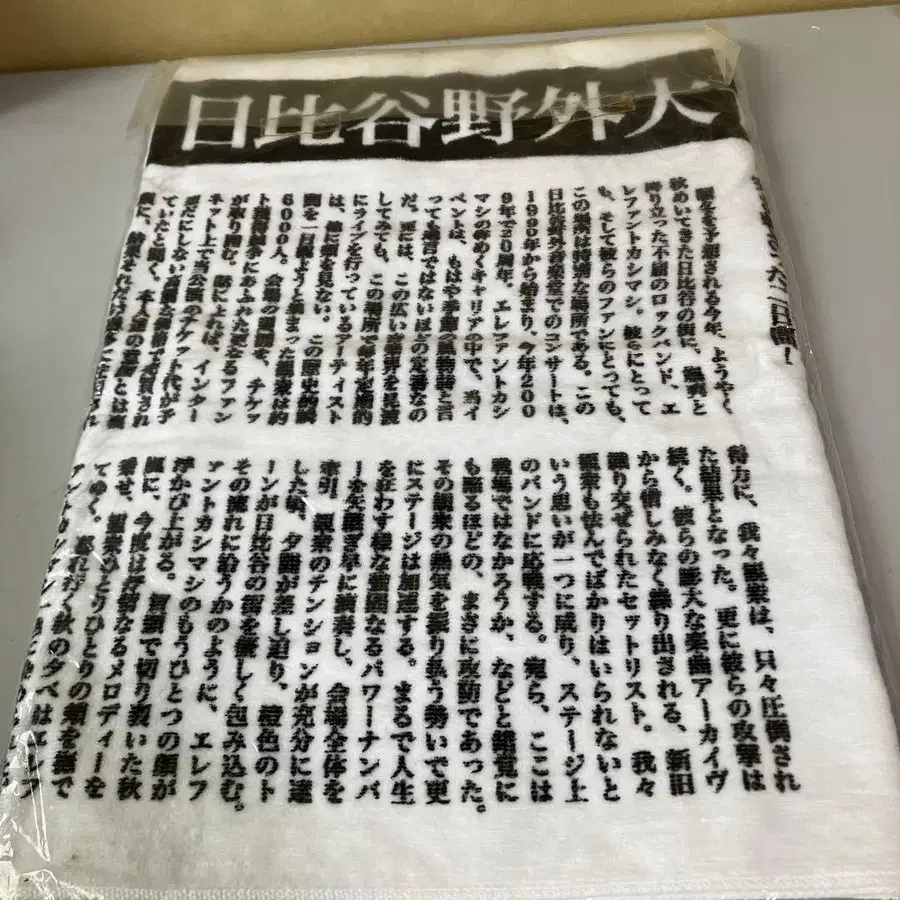 日比谷野外大
った二日間!
を予想される今年、ようやく
秋めいてきた日比谷の街に、颯爽と
降り立った不屈のロックバンド、エ
レファントカシマシ。彼らにとって
も、そして彼らのファンにとっても、
この場所は特別な場所である。この
日比谷野外音楽堂でのコンサートは、
1990年から始まり、今年200
9年で20周年。エレファントカシ
マシの煌めくキャリアの中で、当イ
ベントは、もはや季節の風物詩と言
っても過言ではないほどの定番なの
だ。更には、この広い音楽界を見渡
してみても、この場所で毎年定期的
にライブを行っているアーティスト
は、他に類を見ない。この歴史的瞬
間を一目観ようと集まった観衆は約
6000人。会場の周囲を、チケッ
ト獲得競争にあぶれた更なるファン
が取り囲む。によれば、インター
ネット上で当公演のチケット代が予
想だにしない高額な価格で売買され
ていたと聞く。本人達の意図とは裏
得方に、我々観衆は、只々圧倒され
た結果となった。更に彼らの攻撃は
続く。彼らの膨大な楽曲アーカイヴ
から惜しみなく繰り出される、新旧
織り交ぜられたセットリスト。我々
観衆も怯んでばかりはいられないと
いう思いが一つに成り、ステージ上
のバンドに応戦する。宛ら、ここは
戦場ではなかろうか、などと錯覚に
も陥るほどの、まさに攻防であった。
その観衆の熱気を振り払う勢いで更
にステージは加速する。まるで人生
を狂わす様な強靭なるパワーナンバ
ーを矢継ぎ早に演奏し、会場全体を
牽引。観衆のテンションが充分に達
した頃、夕闇が差し迫り、橙色のト
ーンが日比谷の街を優しく包み込む。
その流れに沿うかのように、エレフ
ァントカシマシのもうひとつの顔が
浮かび上がる。冒頭で切り裂いた秋
風に、今度は芳醇なるメロディーを
乗せ、観衆ひとりひとりの頬を撫で
てゆく。暮れ行く秋の夕べはエレフ